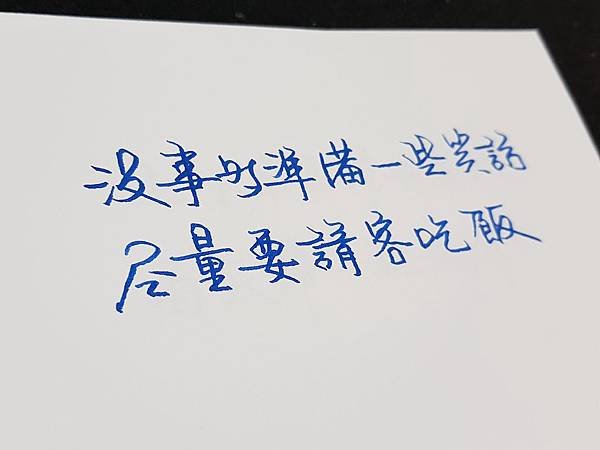 沒事時準備一些笑話
尽量要請客吃飯